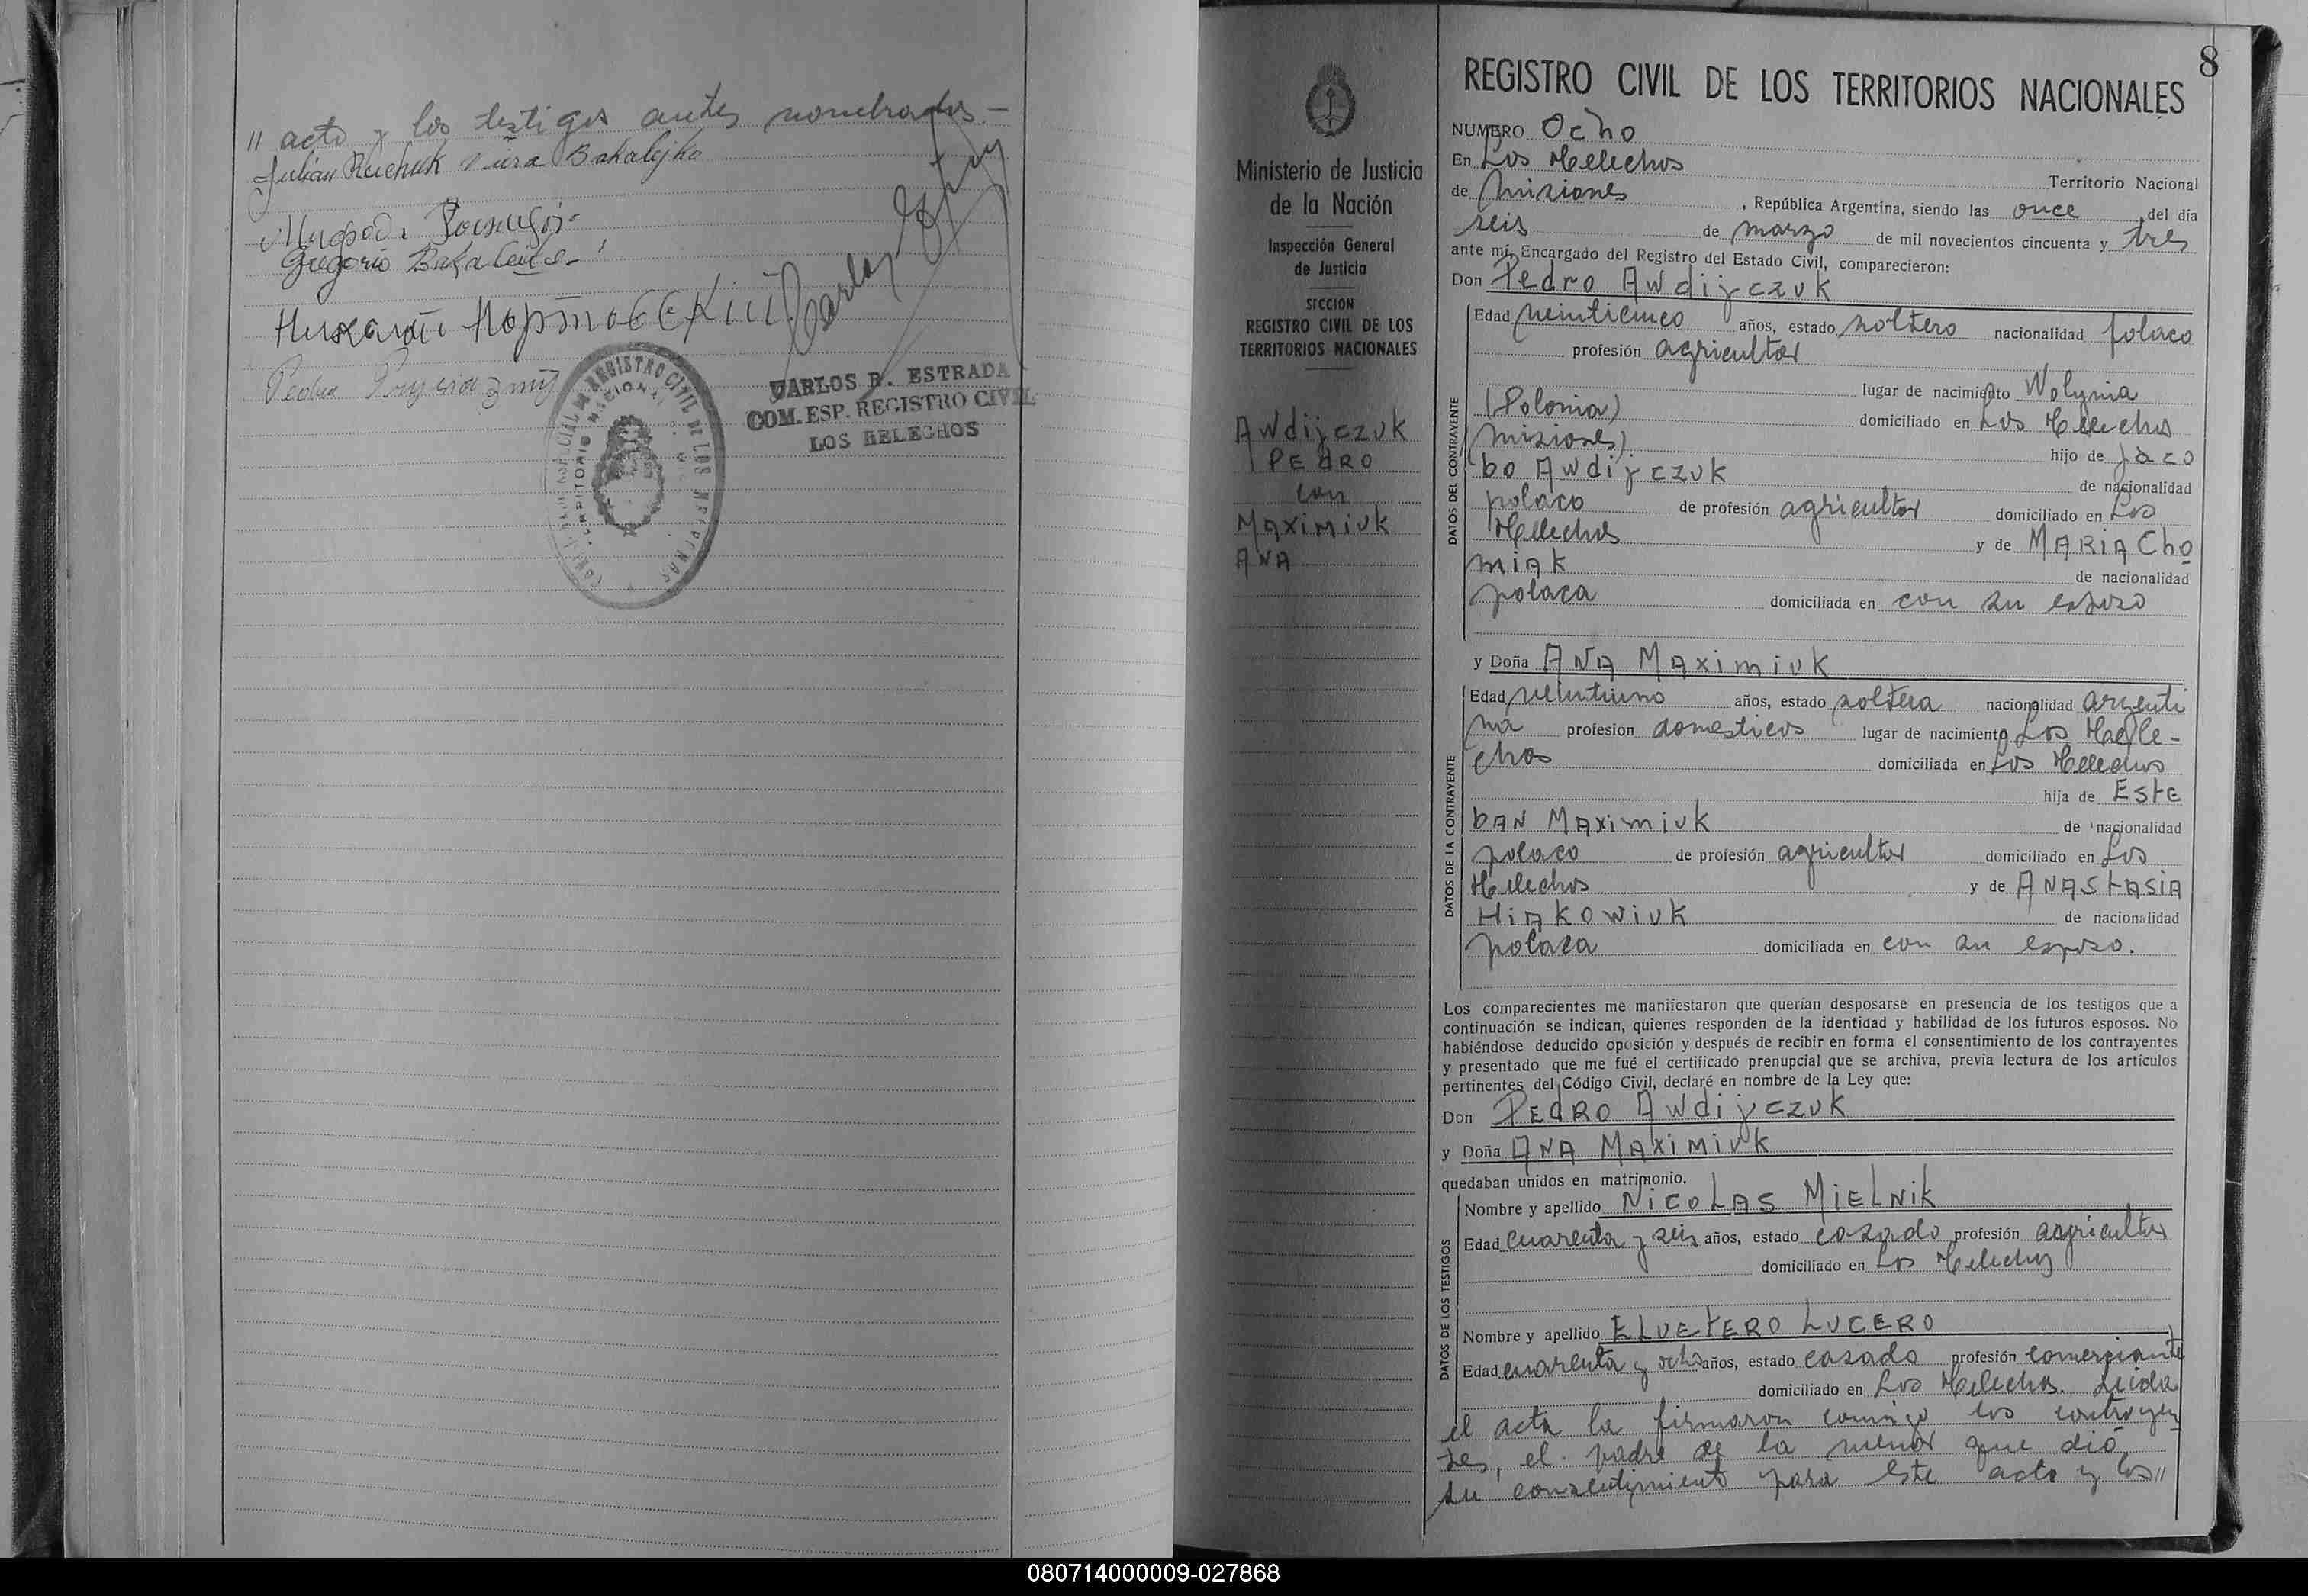 // acto y los testigos antes nombrados.-
Julian Reichuk Viera Bakalejko
Gregorio Bakaleiko
Carlos
Pedro
REGISTRO CIVIL DE LOS
CARLOS R. ESTRADA
COM. ESP. REGISTRO CIVIL
LOS HELECHOS
8
Ministerio de Justicia
de la Nación
Inspección General
de Justicia
SECCION
REGISTRO CIVIL DE LOS
TERRITORIOS NACIONALES
Awdijczuk
PEdRO
con
MAXimiuk
ANA
REGISTRO CIVIL DE LOS TERRITORIOS NACIONALES
NUMERO Ocho
En Los Helechos
Territorio Nacional
de Misiones, República Argentina, siendo las once del día
seis de marzo de mil novecientos cincuenta y tres
ante mí, Encargado del Registro del Estado Civil, comparecieron:
Don Pedro Awdijczuk
DATOS DEL CONTRAYENTE
Edad veinticinco años, estado soltero nacionalidad polaco
profesión agricultor
lugar de nacimiento Wolynia
(Polonia) domiciliado en Los Helechos
(Misiones) hijo de Jaco
bo Awdijczuk de nacionalidad
polaco de profesión agricultor domiciliado en Los
Helechos y de MARIA Cho
miak de nacionalidad
polaca domiciliada en con su esposo
y Doña ANA MAximiuk
DATOS DE LA CONTRAYENTE
Edad veintiuno años, estado soltera nacionalidad argenti
na profesión domesticos lugar de nacimiento Los Hele-
chos domiciliada en Los Helechos
hija de Este
bAN MAximiuk de nacionalidad
polaco de profesión agricultor domiciliado en Los
Helechos y de ANAStASiA
HiAkowiuk de nacionalidad
polaca domiciliada en con su esposo.
Los comparecientes me manifestaron que querían desposarse en presencia de los testigos que a
continuación se indican, quienes responden de la identidad y habilidad de los futuros esposos. No
habiéndose deducido oposición y después de recibir en forma el consentimiento de los contrayentes
y presentado que me fué el certificado prenupcial que se archiva, previa lectura de los artículos
pertinentes del Código Civil, declaré en nombre de la Ley que:
Don PEdRO Awdijczuk
y Doña ANA MAXiMiuk
quedaban unidos en matrimonio.
DATOS DE LOS TESTIGOS
Nombre y apellido NicoLAS MiELNik
Edad cuarenta y seis años, estado casado profesión agricultor
domiciliado en Los Helechos
Nombre y apellido ELUEtERO LUCERO
Edad cuarenta y ocho años, estado casado profesión comerciante
domiciliado en Los Helechos. Leida
el acta la firmaron comigo los contrayen
tes, el padre de la menor que dió
su consedimiento para este acto y los//
080714000009-027868